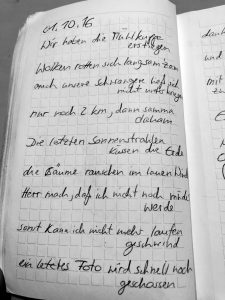 01.10.16
Wir haben die Mühlkuppe
erstiegen
Wolken rotten sich langsam zam
auch unsere Schwangere ließ sich
nicht unterkriegen
nur noch 2 km, dann samma
daham
Die letzten Sonnenstrahlen
küssen die Erde
die Bäume rauschen im lauen Wind
Herr mach, daß ich nicht noch müder
werde
sonst kann ich nicht mehr laufen
geschwind
ein letztes Foto wird schnell noch
geschossen
und